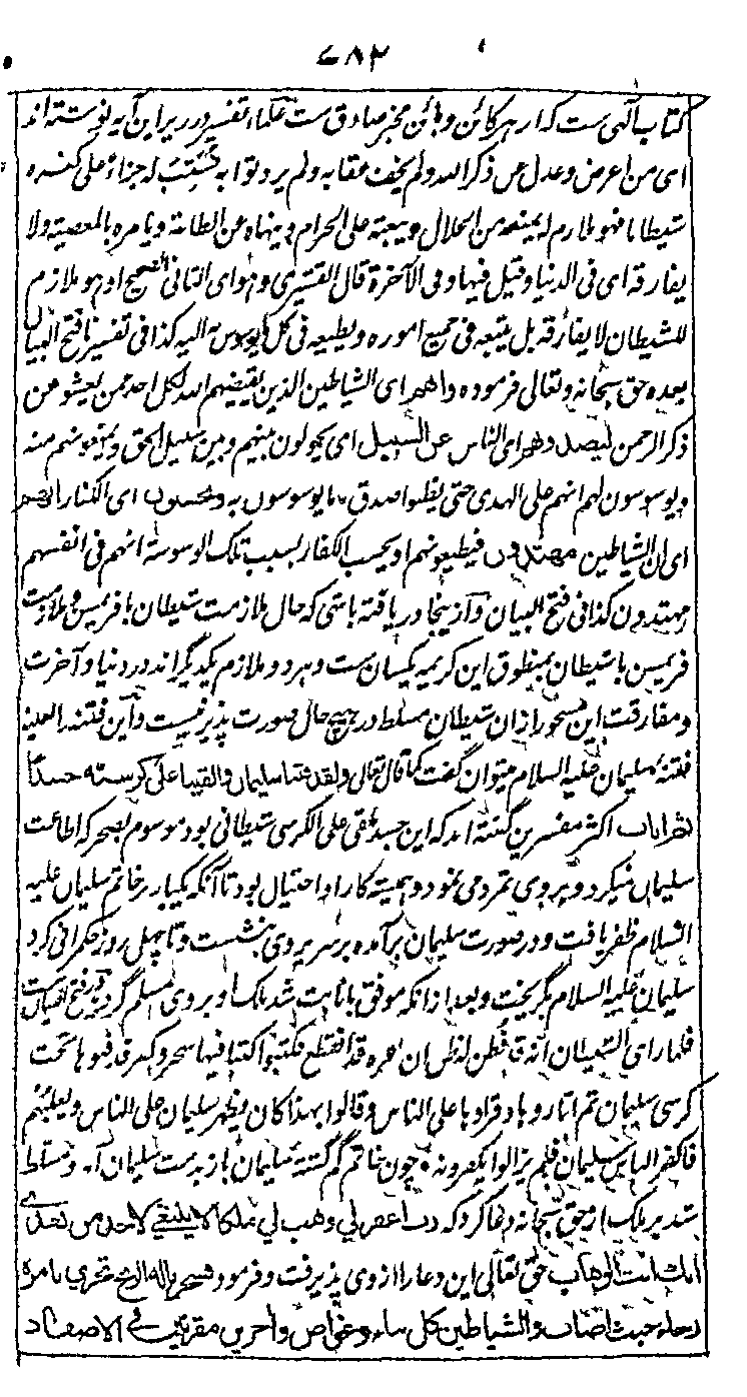 ۷۸۲
کتاب الٰہی ست کہ از ہر کائن و بائن مخبر صادق ست علماء تفسیر در زیر این آیہ نوشتہ اند
ای من اعرض و عدل عن ذکر الله ولم یخف عقابه ولم یرد ثوابه نسبب له جزاء علی کفره
شیطانا فهو ملازم له یمنعه من الحلال ویبعثه علی الحرام وینهاه عن الطاعة ویامره بالمعصیة ولا
یفارقه ای فی الدنیا وقیل فیها وفی الآخرة قال القشیری وهوای الثانی الصحیح اوهو ملازم
للشیطان لا یفارقه بل یتبعه فی جمیع اموره ویطیعه فی کل ما یوسوس به الیه کذا فی تفسیرنا فتح البیان
بعده حق سبحانه وتعالی فرموده وانهم ای الشیاطین الذین یقیضهم الله لکل احد ممن یعشو عن
ذکر الرحمن لیصدونهم ای الناس عن السبیل ای یحولون بینهم وبین سبیل الحق ویمنعونهم منه
ویوسوسون لهم انهم علی الهدی حتی یظنوا صدق ما یوسوسون به ویحسبون ای الکفار انهم
ای ان الشیاطین مهتدون فیطیعونهم او یحسب الکفار بسبب تلک الوسوسة انهم فی انفسهم
مهتدون کذا فی فتح البیان و از ینجا دریافته باشی که حال ملازمت شیطان با قرین و ملازمت
قرین با شیطان بمنطوق این کریمه یکسان ست و هر دو ملازم یکدیگر اند در دنیا و آخرت
و مفارقت این مسحور ازان شیطان مسلط در هیچ حال صورت پذیر نیست و این فتنه را بعینه
فتنه سلیمان علیه السلام میتوان گفت کما قال تعالی ولقد فتنا سلیمان والقینا علی کرسیه جسدا
ثم اناب اکثر مفسرین گفته اند که این جسد ملقی علی الکرسی شیطانی بود موسوم بصخر که اطاعت
سلیمان نمیکرد و بر وی تمرد می نمود و همیشه کار او احتیال بود تا آنکه یکبار بر خاتم سلیمان علیه
السلام ظفر یافت و در صورت سلیمان برآمده بر سریر وی بنشست و تا چهل روز حکمرانی کرد
سلیمان علیه السلام بگریخت و بعد ازانکه موفق بانابت شد ملک او بر وی مسلم گردید در فتح البیان ست
فلما رای الشیطان انه قد فطن له ظن ان امره قد انقطع فکتبوا کتبا فیها سحر وکفر فدفنوها تحت
کرسی سلیمان ثم اثاروها وقراوها علی الناس وقالوا بهذا کان یظهر سلیمان علی الناس ویغلبهم
فاکفر الناس سلیمان فلم یزالوا یکفرونه چون خاتم گم گشته سلیمان باز بدست سلیمان آمد و مسلط
شد بر ملک از حق سبحانه دعا کرد که رب اغفر لی وهب لی ملکا لا ینبغی لاحد من بعدی
انک انت الوهاب حق تعالی این دعا را از وی پذیرفت و فرمود فسخرنا له الریح تجری بامره
رخاء حیث اصاب والشیاطین کل بناء وغواص وآخرین مقرنین فی الاصفاد